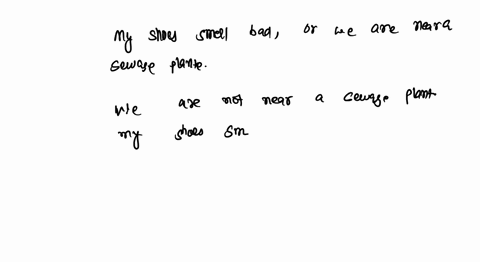 My shoes smell bad, or we are near a
sewage plante.
We are not near a sewage plant
my shoes sm